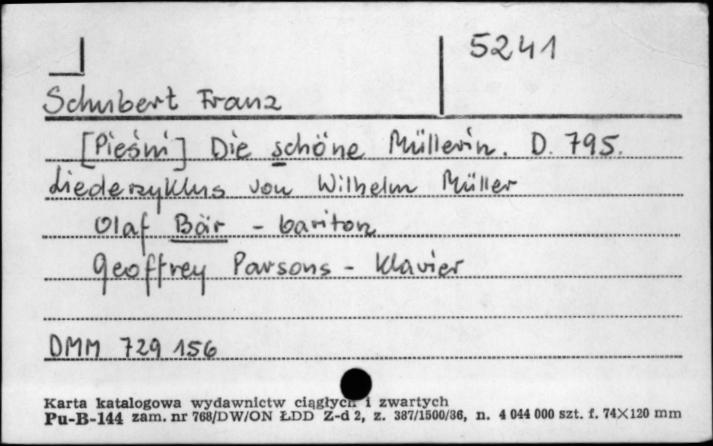 5241
Schubert Franz
[Pieśni] Die schöne Müllerin. D. 795.
Liederzyklus von Wilhelm Müller
Olaf Bär - bariton
Geoffrey Parsons - Klavier
DMM 729 156
Karta katalogowa wydawnictw ciągłych i zwartych
Pu-B-144 zam. nr 768/DW/ON ŁDD Z-d 2, z. 387/1500/86, n. 4 044 000 szt. f. 74×120 mm